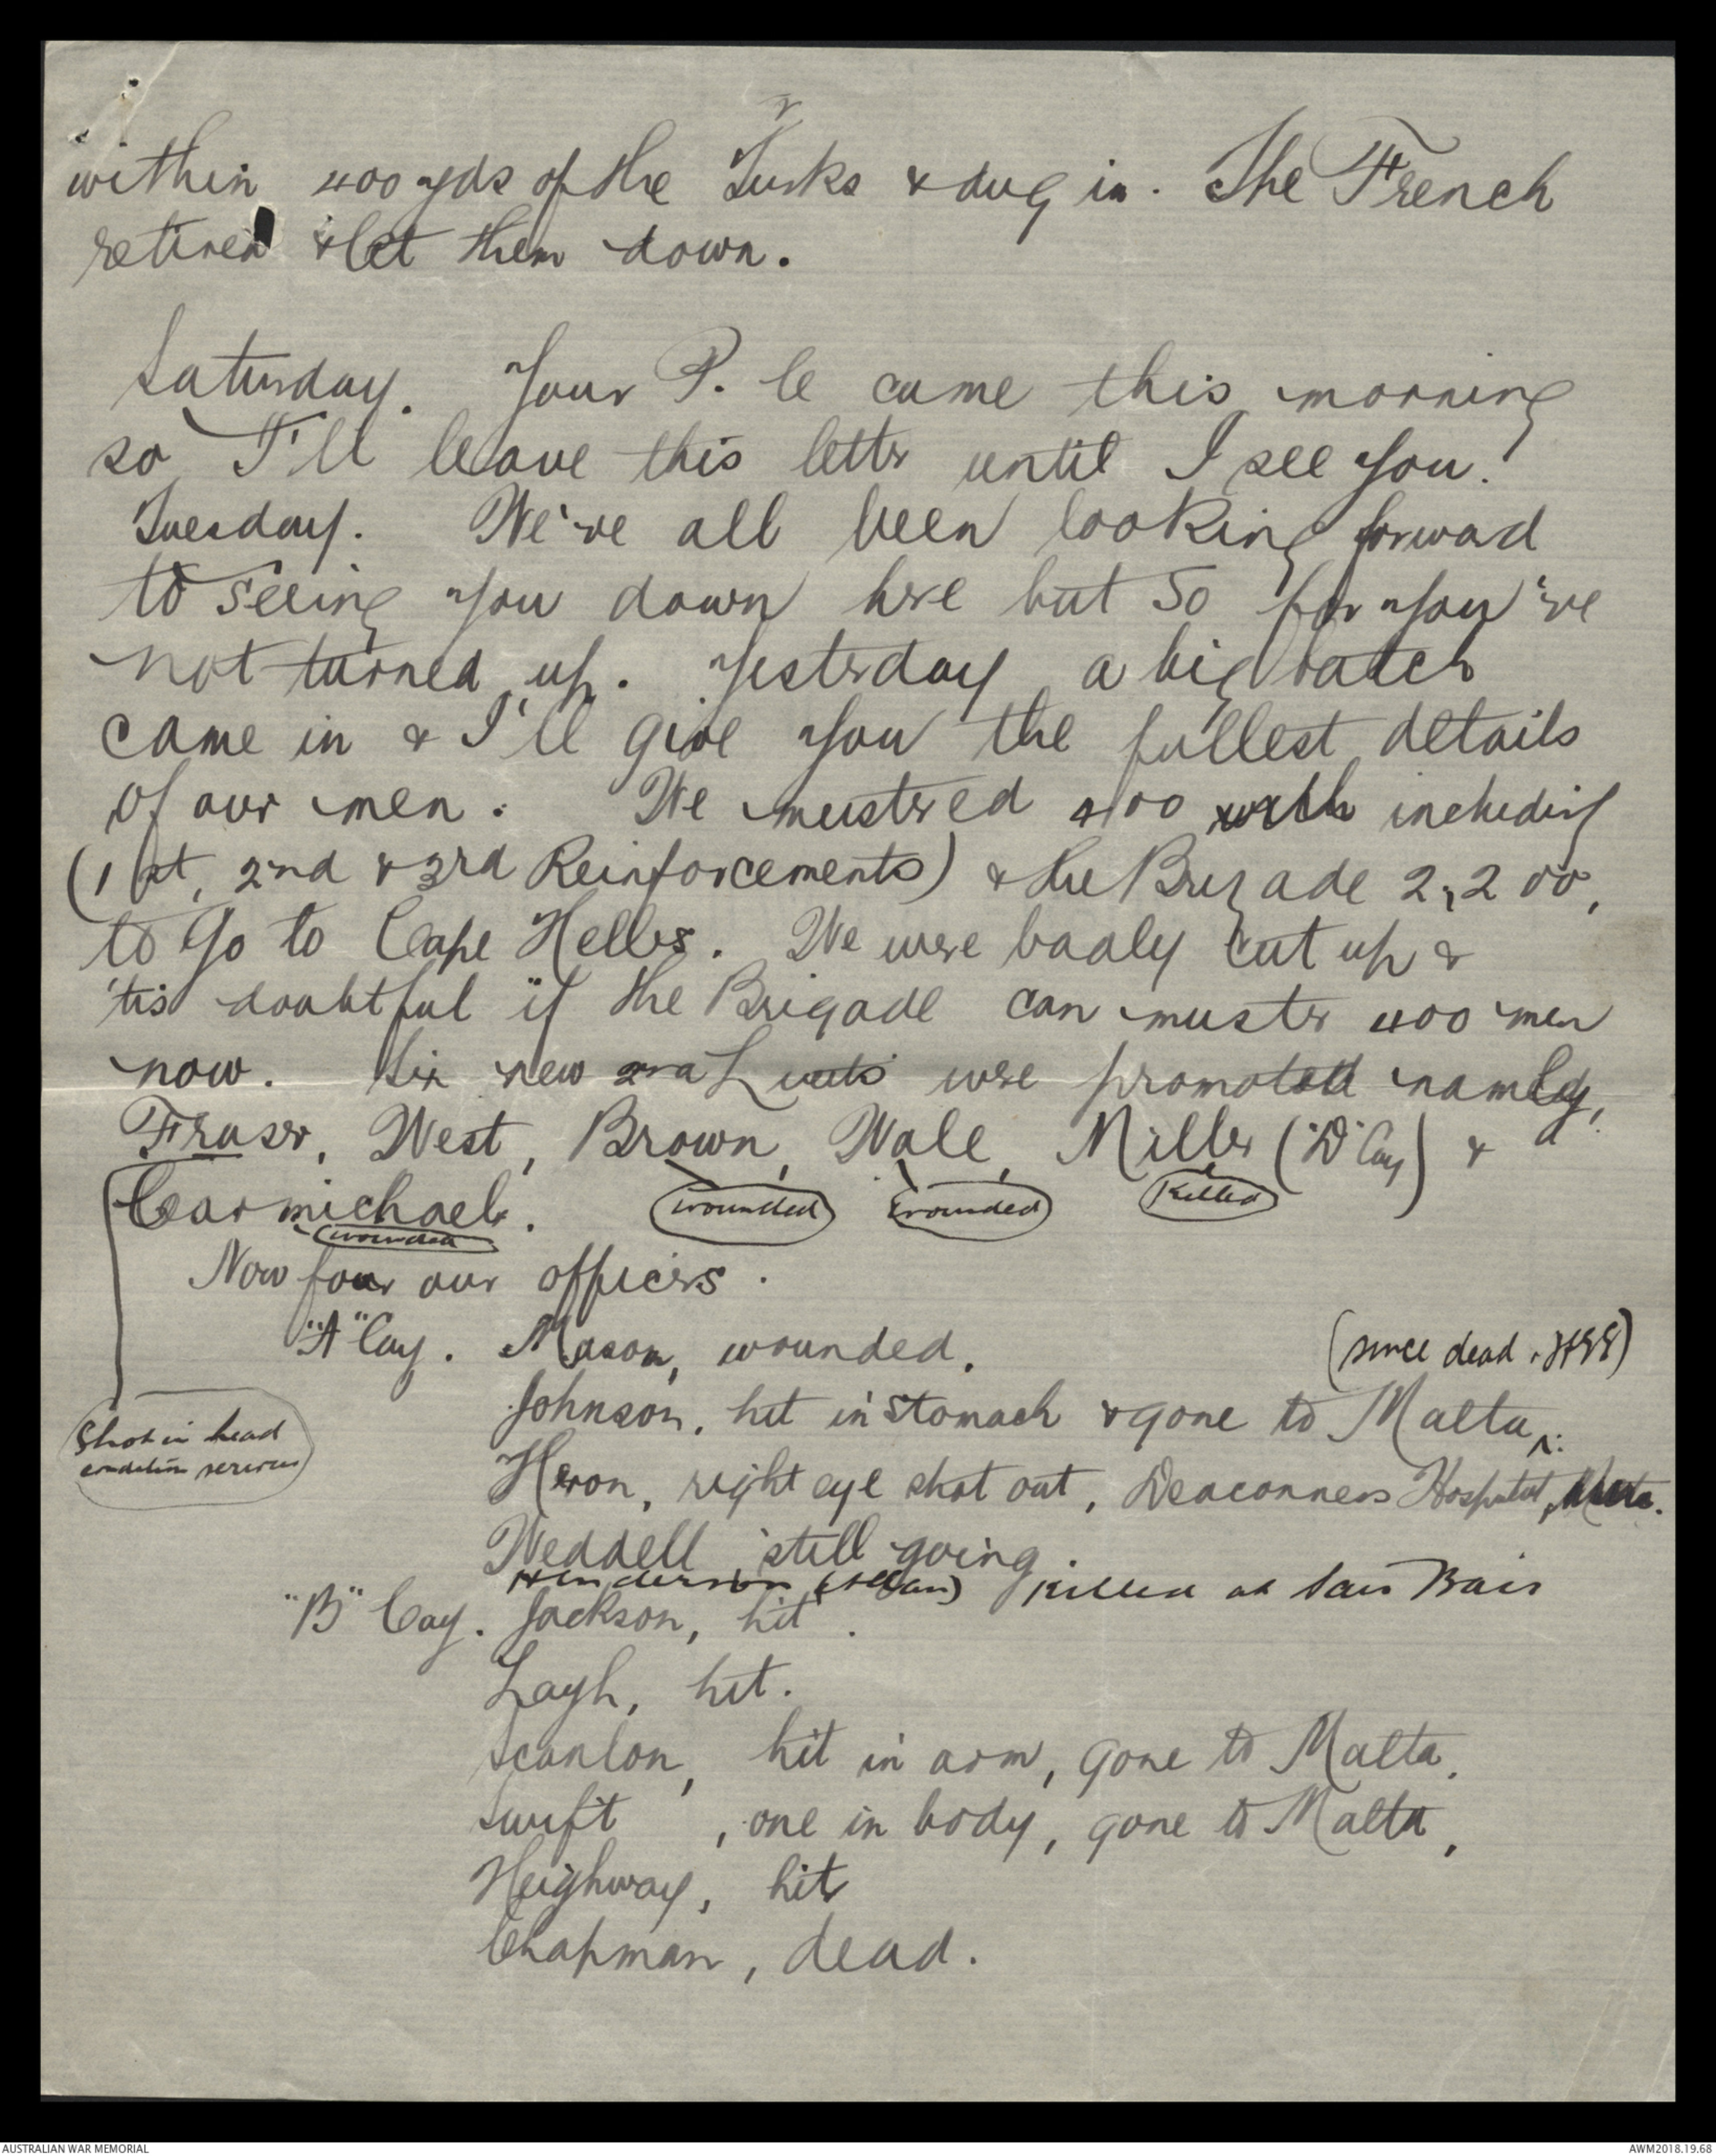 within 400 yds of the Turks & dug in. The French
retired & let them down.
Saturday. Your P. le came this morning
so I'll leave this letter until I see you.
Tuesday. We've all been looking forward
to seeing you down here but so far you've
not turned up. Yesterday a big batch
came in & I'll give you the fullest details
of our men. We mustered 400 with including
(1st, 2nd & 3rd Reinforcements) & the Brigade 2,200,
to go to Cape Helles. We were badly cut up &
'tis doubtful if the Brigade can muster 400 men
now. Six new 2nd Lieuts were promoted namely,
Fraser, West, Brown, Wale, Miller ("D" Coy) &
Carmichael. wounded wounded Killed
wounded
Now for our officers.
"A" Coy. Mason, wounded. (since dead.
Johnson, hit in stomach & gone to Malta
Heron, right eye shot out, Deaconness Hospital,
Shot in head
condition serious
Weddell still going.
Henderson (Allan) Killed at Sari Bair
"B" Coy. Jackson, hit.
Layh, hit.
Scanlon, hit in arm, gone to Malta,
Swift, one in body, gone to Malta,
Heighway, hit
Chapman, dead.
AUSTRALIAN WAR MEMORIAL
AWM2018.19.68